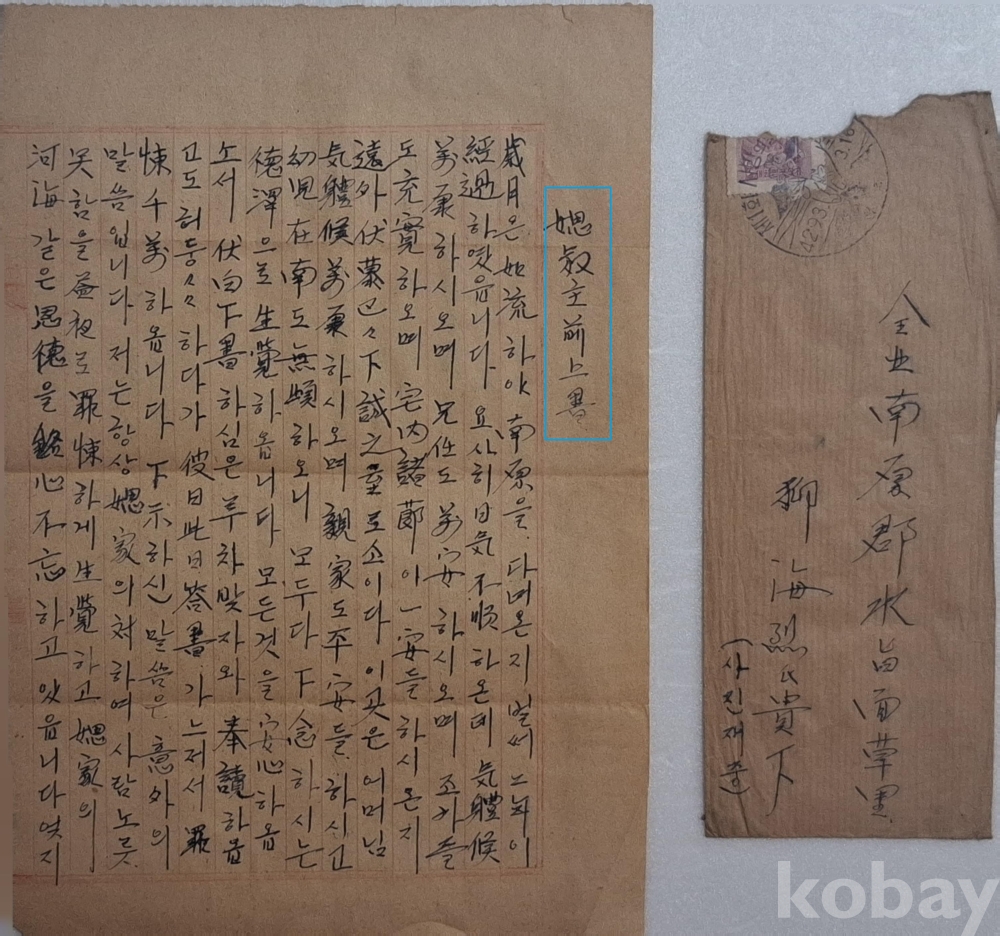 媤叔主前上書
歲月은 如流하야 南原을 다녀온지 벌써 二年이
經過하였읍니다 요사히 日気 不順하온데 気體候
萬康하시오며 兄任도 萬安하시오며 조카들
도 充實하오며 宅內諸節이 一安들 하시온지
遠外伏慕區々下誠之至로소이다 이곳은 어머님
気體候萬康하시오며 親家도 平安들 하시고
幼児在南도 無頉하오니 모두다 下念하시는
德澤으로 生覺하옵니다 모든것을 安心하옵
소서 伏白 下書하심은 두차맞자와 奉讀하옵
고도 허둥々々하다가 彼日此日 答書가 느저서 罪
悚千萬하옵니다 下示하신 말씀은 意外의
말씀입니다 저는 항상 媤家의 처하여 사람노릇
못함을 晝夜로 罪悚하게 生覺하고 媤家의
河海같은 恩德을 銘心不忘하고 있읍니다 엿지
4293
3.16
全北 南原郡 水旨面 草里
柳海烈氏 貴下
(사진재중)
kobay